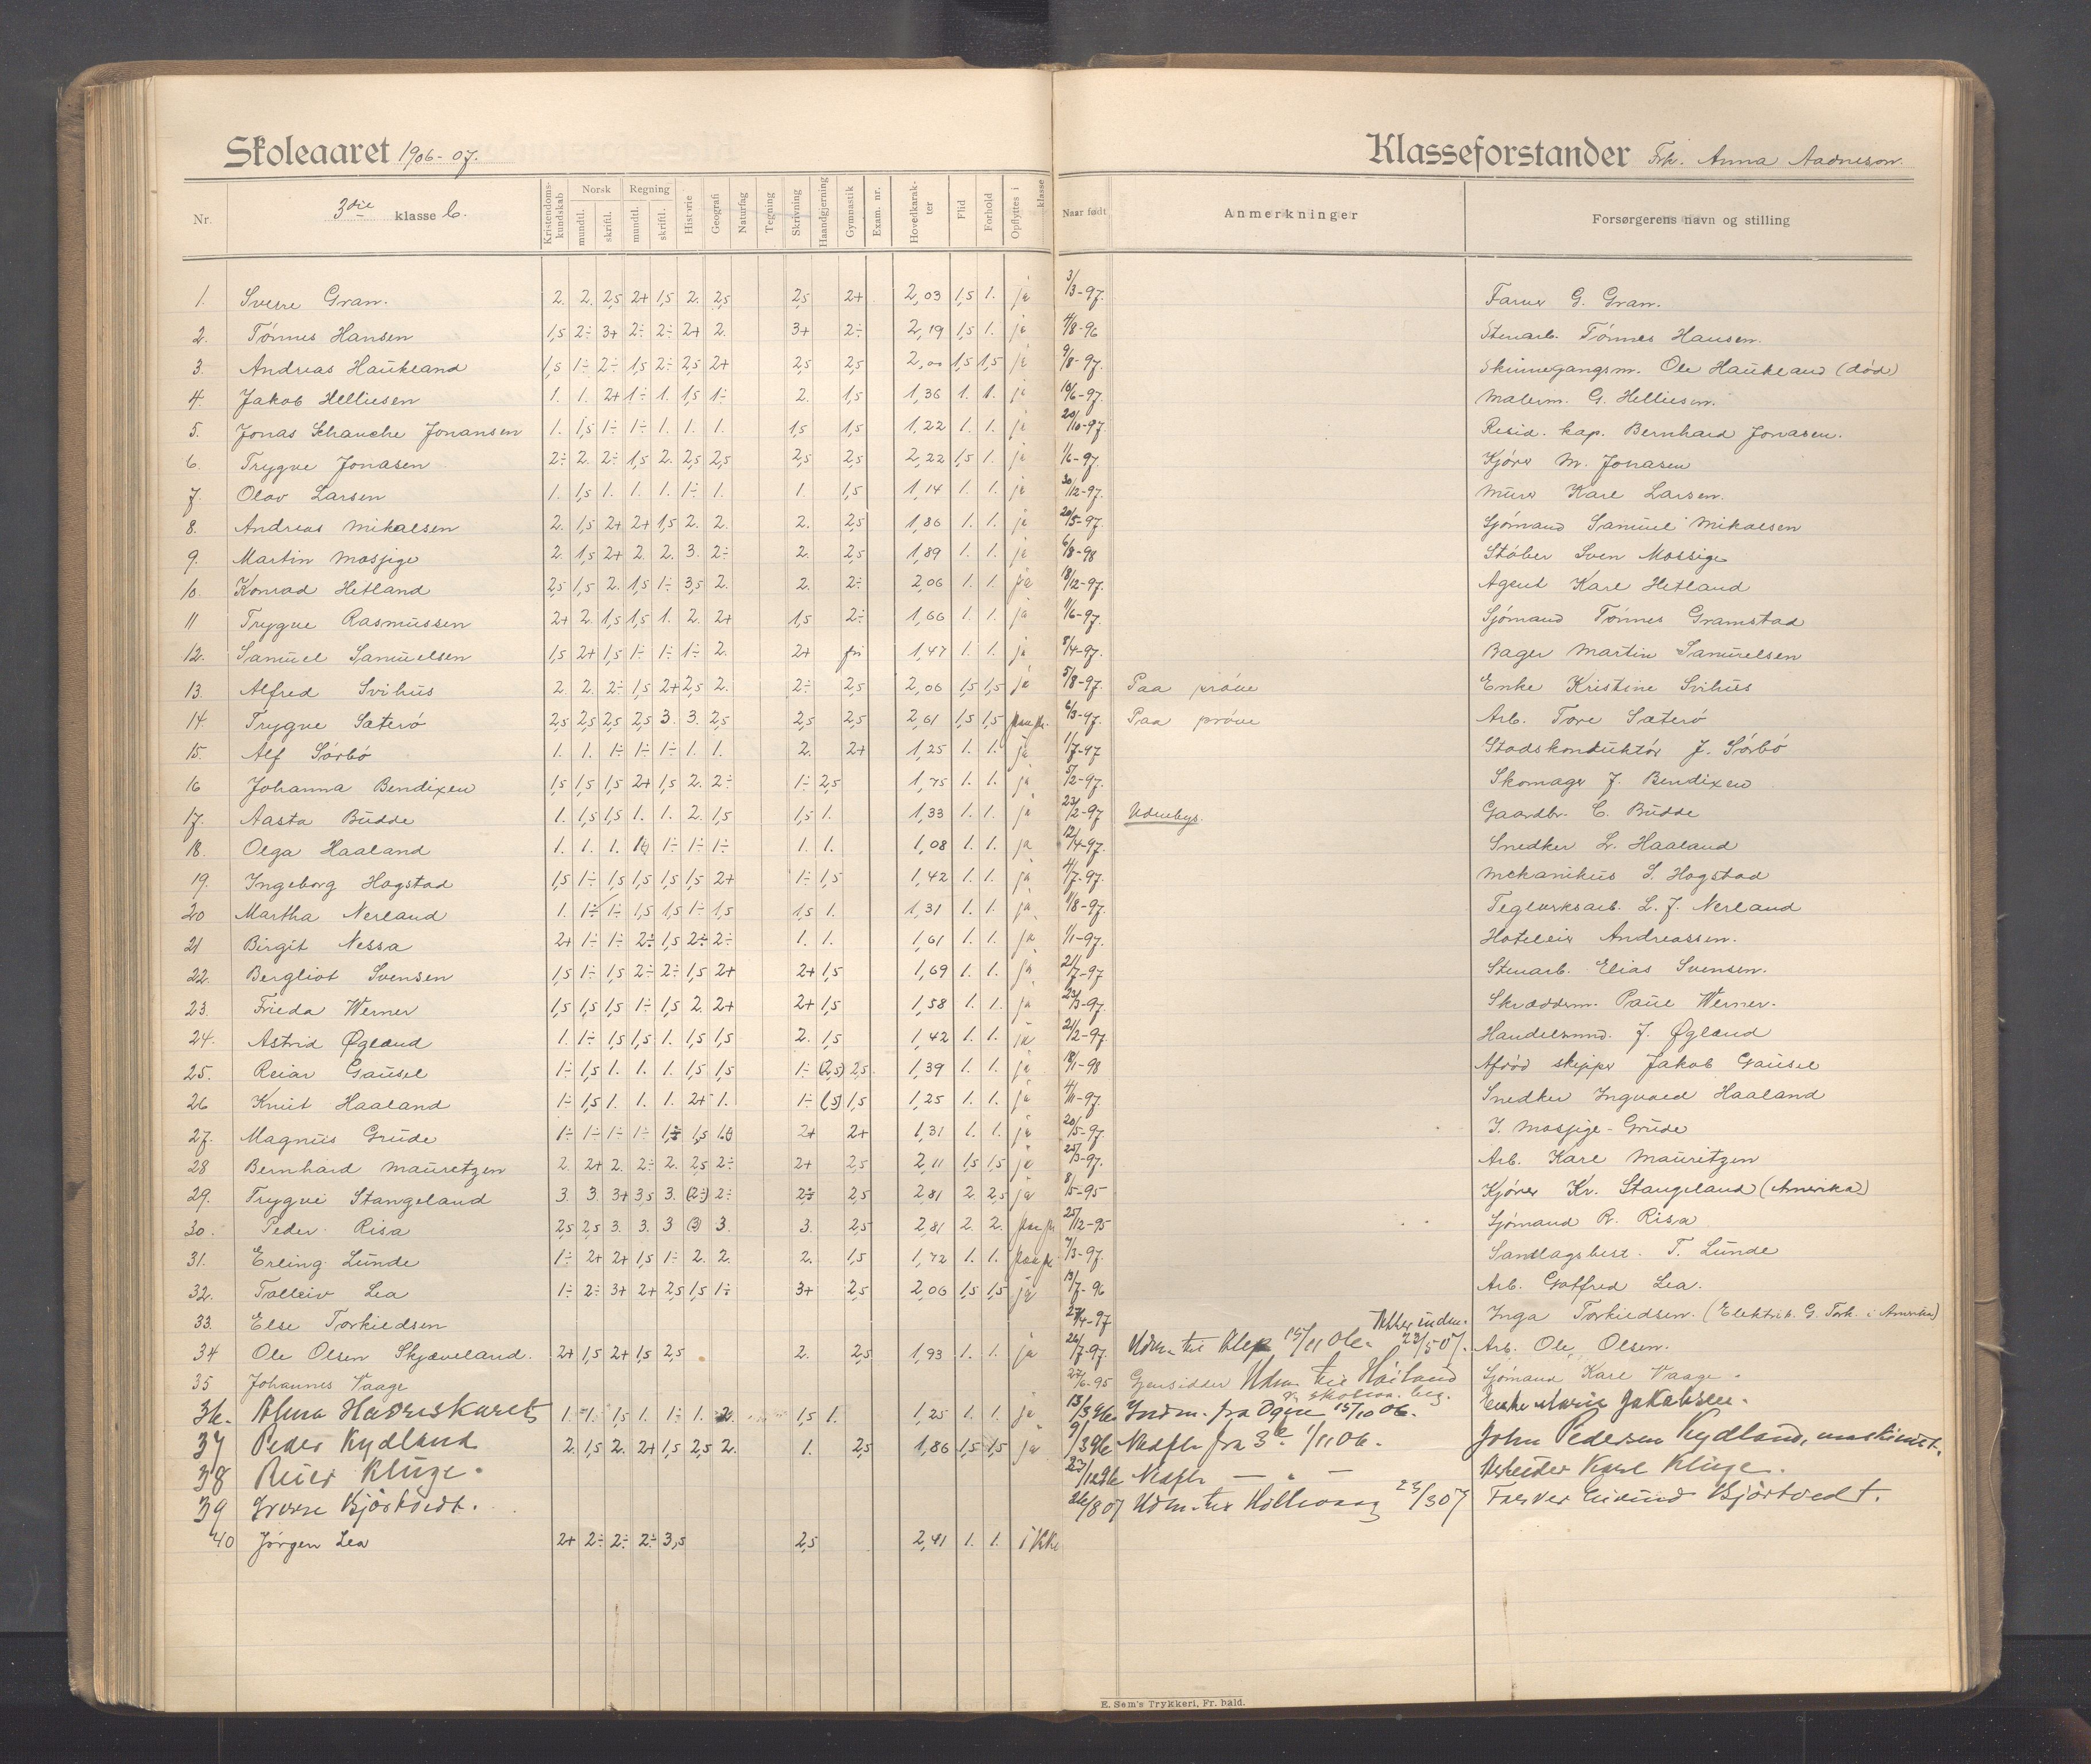 Skoleaaret 1906-07.
Klasseforstander Frk. Anna Aadneson.
Nr.
3die klasse b.
Kristendomskundskab
Norsk mundtl. skriftl.
Regning mundtl. skriftl.
Historie
Geografi
Naturfag
Tegning
Skrivning
Haandgjerning
Gymnastik
Exam. nr.
Hovedkarakter
Flid
Forhold
Opflyttes i klasse
Naar født
Anmerkninger
Forsørgerens navn og stilling
1. Sverre Gran. 2. 2. 2,5 2+ 1,5 2. 2,5 2,5 2+ 2,03 1,5 1. ja 3/3-97. Farver G. Gran.
2. Tónnes Hansen 1,5 2÷ 3+ 2÷ 2÷ 2+ 2. 3+ 2÷ 2,19 1,5 1. ja 4/8-96 Stenarb. Tónnes Hansen.
3. Andreas Haukland 1,5 1÷ 2÷ 1,5 2÷ 2,5 2+ 2,5 2,5 2,00 1,5 1,5 ja 9/8-97. Skinnegangsm. Ole Haukland (død)
4. Jakob Helliesen 1. 1. 2+ 1÷ 1. 1,5 1÷ 2. 1,5 1,36 1. 1. ja 10/6-97. Malerm. G. Helliesen.
5. Jonas Schanche Jonansen 1. 1,5 1÷ 1÷ 1. 1. 1. 1,5 1,5 1,22 1. 1. ja 20/10-97 Resid. kap. Bernhard Jonasen.
6. Trygve Jonasen 2÷ 2. 2÷ 1,5 2. 2,5 2,5 2,5 2,5 2,22 1,5 1. ja 1/6-97. Kjórer M. Jonasen
7. Olav Larsen 1. 1,5 1. 1. 1. 1÷ 1. 1. 1,5 1,14 1. 1. ja 30/12-97. Murer Karl Larsen.
8. Andreas Mikalsen 2. 1,5 2+ 2+ 1,5 2. 2. 2. 2,5 1,86 1. 1. ja 20/5-97. Sjómand Samuel Mikalsen
9. Martin Mosjige 2. 1,5 2+ 2. 2. 3. 2÷ 2. 2,5 1,89 1. 1. ja 6/8-98 Stóber Sven Mossige
10. Konrad Hetland 2,5 1,5 2. 1,5 1÷ 3,5 2. 2. 2÷ 2,06 1. 1. ja 18/12-97. Agent Karl Hetland
11 Trygve Rasmussen 2+ 2. 1,5 1,5 1. 2. 2+ 1,5 2÷ 1,66 1. 1. ja 11/6-97. Sjómand Tónnes Gramstad
12. Samuel Samuelsen 1,5 2+ 1,5 1÷ 1÷ 1÷ 2. 2+ fri 1,47 1. 1. ja 8/4-97. Bager Martin Samuelsen
13. Alfred Svihus 2. 2. 2÷ 1,5 2+ 2,5 2. 2÷ 2,5 2,06 1,5 1,5 ja 5/8-97. Paa próve Enke Kristine Svihus
14. Trygve Sæteró 2,5 2,5 2,5 2,5 3. 3. 2,5 2,5 2,5 2,61 1,5 1,5 paa pr. 6/3-97. Paa próve Arb. Tore Sæteró
15. Alf Sórbó 1. 1. 1÷ 1÷ 1÷ 1. 1. 2. 2+ 1,25 1. 1. ja 1/7-97 Stadskonduktór J. Sórbó
16 Johanna Bendixen 1,5 1,5 1,5 2+ 1,5 2. 2÷ 1÷ 2,5 1,75 1. 1. ja 5/2-97. Skomager J. Bendixen
17. Aasta Budde 1. 1,5 1,5 1. 1. 2. 1,5 1,5 1. 1,33 1. 1. ja 23/2-97 Udenbys. Gaardbr. C. Budde
18. Olga Haaland 1. 1. 1. 1÷ 1÷ 1÷ 1÷ 1. 1. 1,08 1. 1. ja 12/4-97. Snedker L. Haaland
19. Ingeborg Hogstad 1,5 1÷ 1,5 1,5 1,5 1,5 2+ 1÷ 1,5 1,42 1. 1. ja 4/7-97. Mekanikus S. Hogstad
20 Martha Nerland 1. 1÷ 1÷ 1,5 1,5 1÷ 1,5 1,5 1. 1,31 1. 1. ja 1/8-97. Teglverksarb. L. J. Nerland
21 Birgit Nessa 2+ 1÷ 1÷ 2÷ 1,5 2÷ 2÷ 1. 1. 1,61 1. 1. ja 1/1-97. Hoteleier Andreassen.
22. Bergliot Svensen 1,5 1÷ 1,5 2÷ 2÷ 1,5 2+ 2+ 1,5 1,69 1. 1. ja 21/7-97 Stenarb. Elias Svensen.
23. Frieda Werner 1,5 1,5 1,5 1÷ 1,5 2. 2+ 2+ 1,5 1,58 1. 1. ja 23/3-97. Skrædderm. Paul Werner.
24. Astrid Øgland 1. 1÷ 1,5 1,5 1. 1,5 1,5 2. 1,5 1,42 1. 1. ja 21/2-97. Handelsmd. J. Øgland
25. Reiar Gausel 1÷ 1,5 1. 1. 1. 1,5 1,5 1÷ (2,5) 2,5 1,39 1. 1. ja 18/1-98 Afdød skipper Jakob Gausel
26 Knut Haaland 1÷ 1,5 1. 1. 1. 2+ 1. 1÷ (1,5) 1,5 1,25 1. 1. ja 4/11-97. Snedker Ingvald Haaland
27. Magnus Grude 1÷ 1÷ 1÷ 1÷ 1,5 2+ 2+ 1,31 1. 1. ja 20/5-97. I. Mosjige-Grude
28 Bernhard Mauretzen 2. 2+ 2. 2÷ 2. 2,5 2÷ 2+ 2,5 2,11 1,5 1,5 ja 25/3-97. Arb. Karl Mauritzen
29. Trygve Stangeland 3. 3. 3+ 3,5 3. (2÷) 2÷ 2÷ 2,5 2,81 2. 2,5 ja 8/5-95 Kjórer Kr. Stangeland (Amerika)
30. Peder Risa 2,5 2,5 3. 3. 3 (3) 3. 3. 2,5 2,81 2. 2. paa pr 25/12-95 Sjómand R. Risa
31. Erling Lunde 1÷ 2+ 2+ 1,5 1÷ 2. 2. 2. 1,5 1,72 1. 1. paa pr 7/3-97. Samlagsbest. T. Lunde
32. Tolleiv Lea 1÷ 2÷ 3+ 2+ 2,5 1,5 1÷ 3+ 2,5 2,06 1,5 1,5 ja 19/7-96 Arb. Gotfred Lea.
33. Else Torkildsen 27/4-97 Inga Torkildsen. (Elektrik. G. Tork. i Amerika)
34 Ole Olsen Skjæveland. 2+ 1,5 2+ 1,5 2,5 2. 2,5 1,93 1. 1. ja 26/7-97. Udm. til Klep 15/11 06. Atter indm. 23/5 07. Arb. Ole Olsen.
35 Johannes Vaage 27/6-95 Gjensidder Udm. til Høiland Sjómand Karl Vaage.
36. Alma Havreskaret 1. 1. 1,5 1. 1÷ 1. 2. 1,5 1. 1,25 1. 1. ja 13/3 96. Indm. fra 15/10 06. Enke Marie Jakobsen.
37 Peder Kydland 2. 1,5 2. 2+ 1,5 2,5 2. 1. 2,5 1,86 1,5 1,5 ja 9/3 96 Nedfl. fra 3e 1/11 06. John Pedersen Kydland, maskinist.
38 Reier Kluge. 23/12 96 Nedfl. — " — Arbeider Karl Kluge.
39 Sverre Bjórtvedt. 26/8 07 Udm. til 23/3 07 Farver Eivind Bjórtvedt.
40 Jórgen Lea 2+ 2÷ 2÷ 2÷ 3,5 2,5 2,41 1. 1. ikke
E. Sem's Trykkeri, Fr.hald.